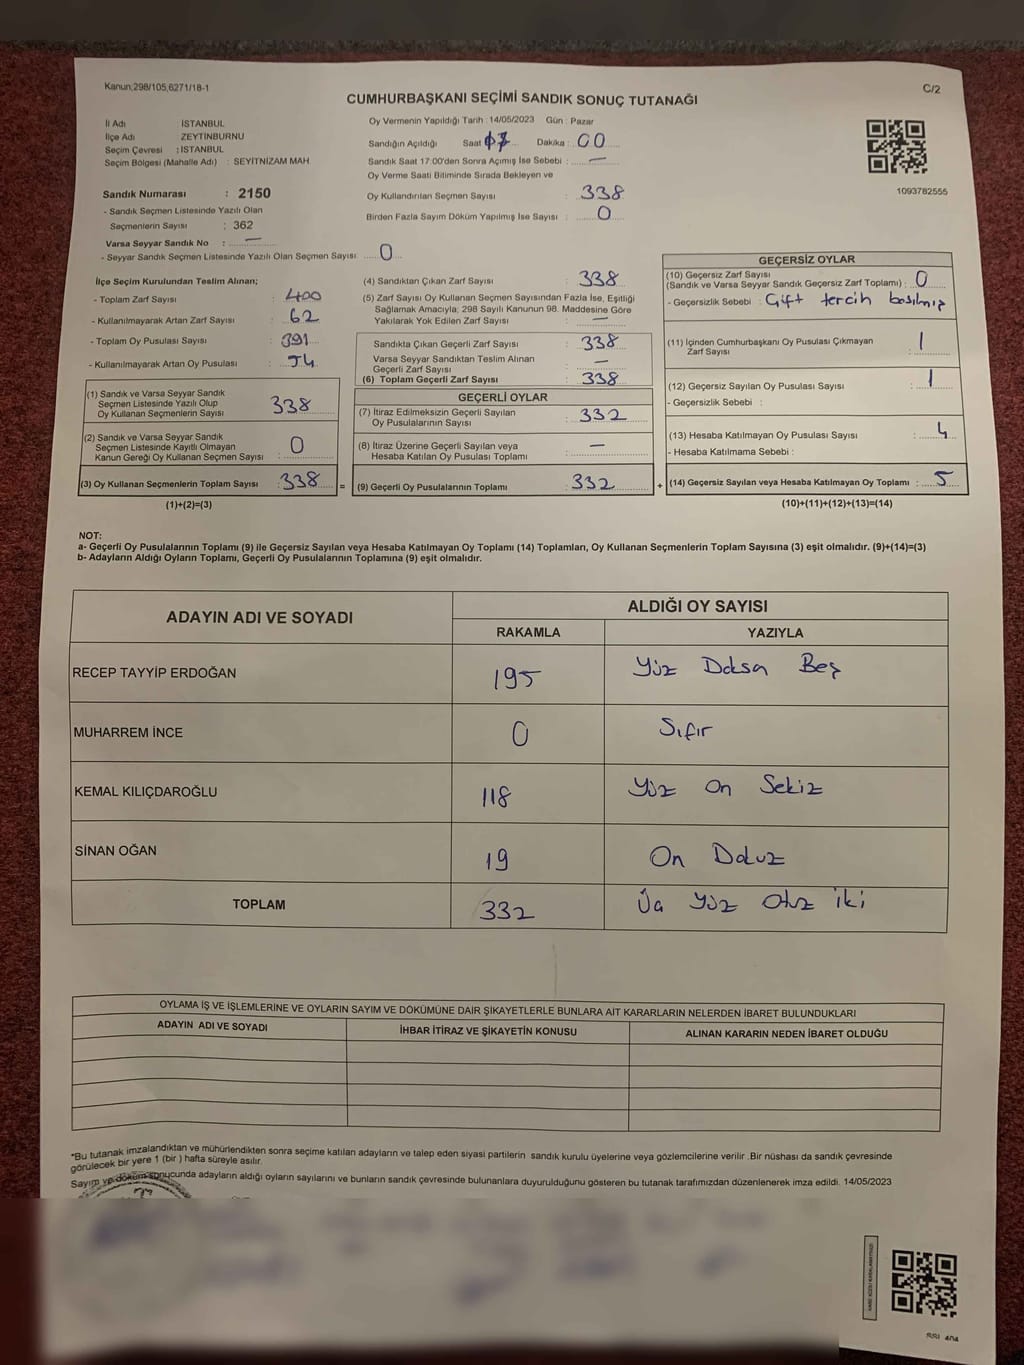 Kanun;298/105,6271/18-1
C/2
CUMHURBAŞKANI SEÇİMİ SANDIK SONUÇ TUTANAĞI
İl Adı İSTANBUL
İlçe Adı ZEYTİNBURNU
Seçim Çevresi : İSTANBUL
Seçim Bölgesi (Mahalle Adı) : SEYİTNİZAM MAH
Sandık Numarası : 2150
- Sandık Seçmen Listesinde Yazılı Olan
Seçmenlerin Sayısı : 362
Varsa Seyyar Sandık No : —
- Seyyar Sandık Seçmen Listesinde Yazılı Olan Seçmen Sayısı 0
Oy Vermenin Yapıldığı Tarih : 14/05/2023 Gün : Pazar
Sandığın Açıldığı Saat Dakika : 00
Sandık Saat 17:00'den Sonra Açımış İse Sebebi : —
Oy Verme Saati Bitiminde Sırada Bekleyen ve
Oy Kullandırılan Seçmen Sayısı : 338
Birden Fazla Sayım Döküm Yapılmış İse Sayısı : 0
1093782555
İlçe Seçim Kurulundan Teslim Alınan;
- Toplam Zarf Sayısı : 400
- Kullanılmayarak Artan Zarf Sayısı : 62
- Toplam Oy Pusulası Sayısı : 391
- Kullanılmayarak Artan Oy Pusulası : 54
(1) Sandık ve Varsa Seyyar Sandık
Seçmen Listesinde Yazılı Olup
Oy Kullanan Seçmenlerin Sayısı 338
(2) Sandık ve Varsa Seyyar Sandık
Seçmen Listesinde Kayıtlı Olmayan
Kanun Gereği Oy Kullanan Seçmen Sayısı 0
(3) Oy Kullanan Seçmenlerin Toplam Sayısı : 338
(1)+(2)=(3)
(4) Sandıktan Çıkan Zarf Sayısı : 338
(5) Zarf Sayısı Oy Kullanan Seçmen Sayısından Fazla İse, Eşitliği
Sağlamak Amacıyla; 298 Sayılı Kanunun 98. Maddesine Göre
Yakılarak Yok Edilen Zarf Sayısı : —
Sandıkta Çıkan Geçerli Zarf Sayısı : 338
Varsa Seyyar Sandıktan Teslim Alınan
Geçerli Zarf Sayısı : —
(6) Toplam Geçerli Zarf Sayısı : 338
GEÇERLİ OYLAR
(7) İtiraz Edilmeksizin Geçerli Sayılan
Oy Pusulalarının Sayısı : 332
(8) İtiraz Üzerine Geçerli Sayılan veya
Hesaba Katılan Oy Pusulası Toplamı : —
= (9) Geçerli Oy Pusulalarının Toplamı : 332
GEÇERSİZ OYLAR
(10) Geçersiz Zarf Sayısı
(Sandık ve Varsa Seyyar Sandık Geçersiz Zarf Toplamı) : 0
- Geçersizlik Sebebi : Çift tercih basılmış
(11) İçinden Cumhurbaşkanı Oy Pusulası Çıkmayan
Zarf Sayısı : 1
(12) Geçersiz Sayılan Oy Pusulası Sayısı : 1
- Geçersizlik Sebebi :
(13) Hesaba Katılmayan Oy Pusulası Sayısı : 4
- Hesaba Katılmama Sebebi :
+ (14) Geçersiz Sayılan veya Hesaba Katılmayan Oy Toplamı : 5
(10)+(11)+(12)+(13)=(14)
NOT:
a- Geçerli Oy Pusulalarının Toplamı (9) ile Geçersiz Sayılan veya Hesaba Katılmayan Oy Toplamı (14) Toplamları, Oy Kullanan Seçmenlerin Toplam Sayısına (3) eşit olmalıdır. (9)+(14)=(3)
b- Adayların Aldığı Oyların Toplamı, Geçerli Oy Pusulalarının Toplamına (9) eşit olmalıdır.
ADAYIN ADI VE SOYADI ALDIĞI OY SAYISI
RAKAMLA YAZIYLA
RECEP TAYYİP ERDOĞAN 195 Yüz Doksan Beş
MUHARREM İNCE 0 Sıfır
KEMAL KILIÇDAROĞLU 118 Yüz On Sekiz
SİNAN OĞAN 19 On Dokuz
TOPLAM 332 Üç Yüz Otuz İki
OYLAMA İŞ VE İŞLEMLERİNE VE OYLARIN SAYIM VE DÖKÜMÜNE DAİR ŞİKAYETLERLE BUNLARA AİT KARARLARIN NELERDEN İBARET BULUNDUKLARI
ADAYIN ADI VE SOYADI İHBAR İTİRAZ VE ŞİKAYETİN KONUSU ALINAN KARARIN NEDEN İBARET OLDUĞU
*Bu tutanak imzalandıktan ve mühürlendikten sonra seçime katılan adayların ve talep eden siyasi partilerin sandık kurulu üyelerine veya gözlemcilerine verilir .Bir nüshası da sandık çevresinde
görülecek bir yere 1 (bir ) hafta süreyle asılır.
Sayım ve döküm sonucunda adayların aldığı oyların sayılarını ve bunların sandık çevresinde bulunanlara duyurulduğunu gösteren bu tutanak tarafımızdan düzenlenerek imza edildi. 14/05/2023